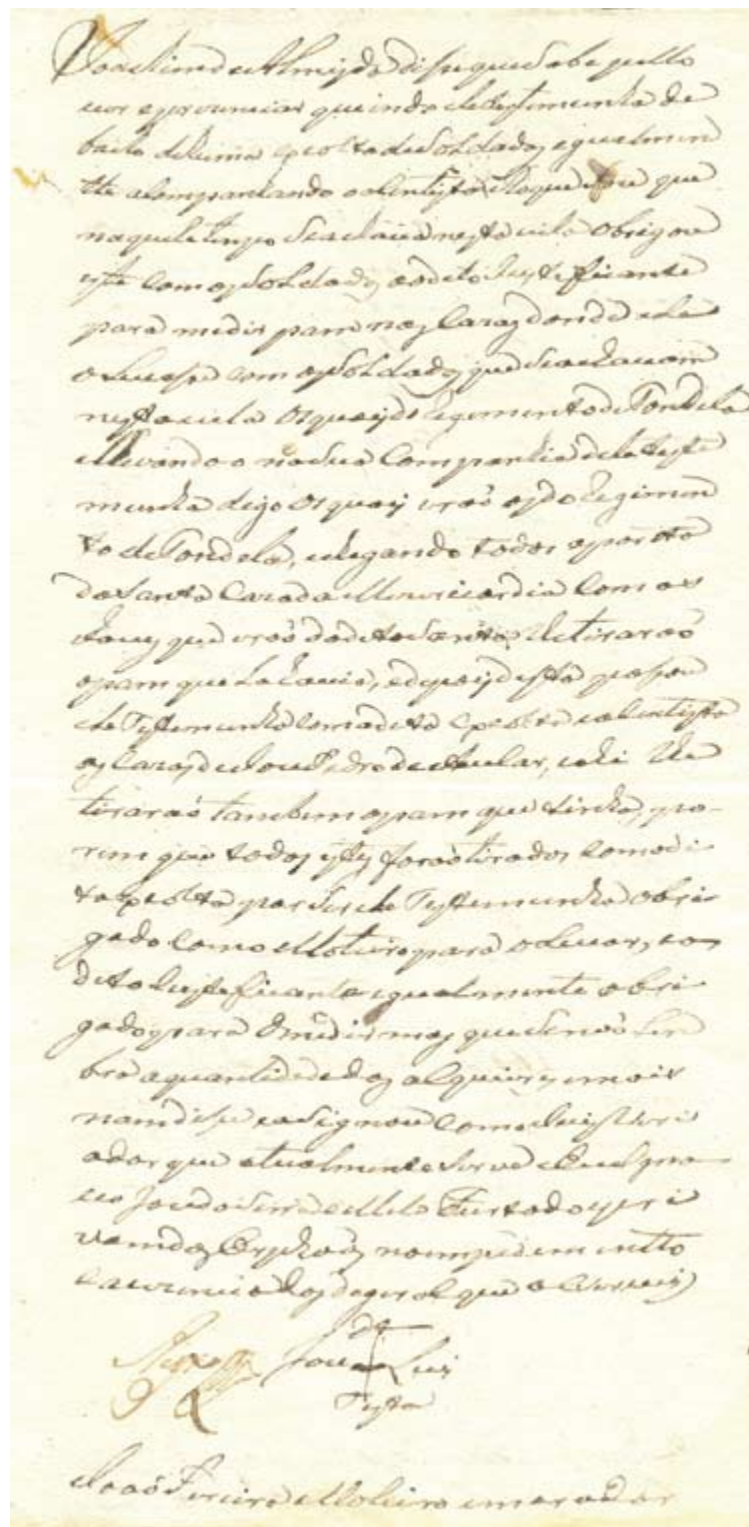 Joachim de Almeyda disse que sabe pello
ver e prezunciar que indo ele testemunha de
baixo de huma escolta de Soldados e igualmen
tte acompanhando o alentista Roque que
naquele tempo se achava nesta vila obrigou
este com os Soldados ao dito Justeficante
para medir pam nas Cazas donde ele
o Levase com os Soldados que se achavam
nesta vila os quais do Regimento de Tondela
e Levando o na sua Companhia dele teste
munha digo os quais eraõ os do Regimen
to de Tondela, chegando todos a porta
da Santa Caza da Mizericordia com as
chaves que eraõ da dita Santa Retiraraõ
o pam que la havia, e depois desta pasou
ele Testemunha com a dita escolta e alentista
as Cazas de Joze Pedro de Avelar, e ali Re
tiraraõ tambem o pam que tinha, po-
rem que todos estes foraõ tirados com a di
ta escolta por ser ele Testemunha obri
gado como Moleiro para o Levar, e o
dito Justeficante igualmente obri
gado para o medir mas que se naõ Lem
bra a quantidade dos alqueires e mais
nam dise e asignou com o Juis Veri
ador que atualmente serve e eu
Joze da Serra e Mello Furtado escri
vam dos Orphaõs no empedimento
e auzencia dos do geral que o escrevy
de
Joze Luis
Testa
Joaõ Ferreira Moleiro e morador